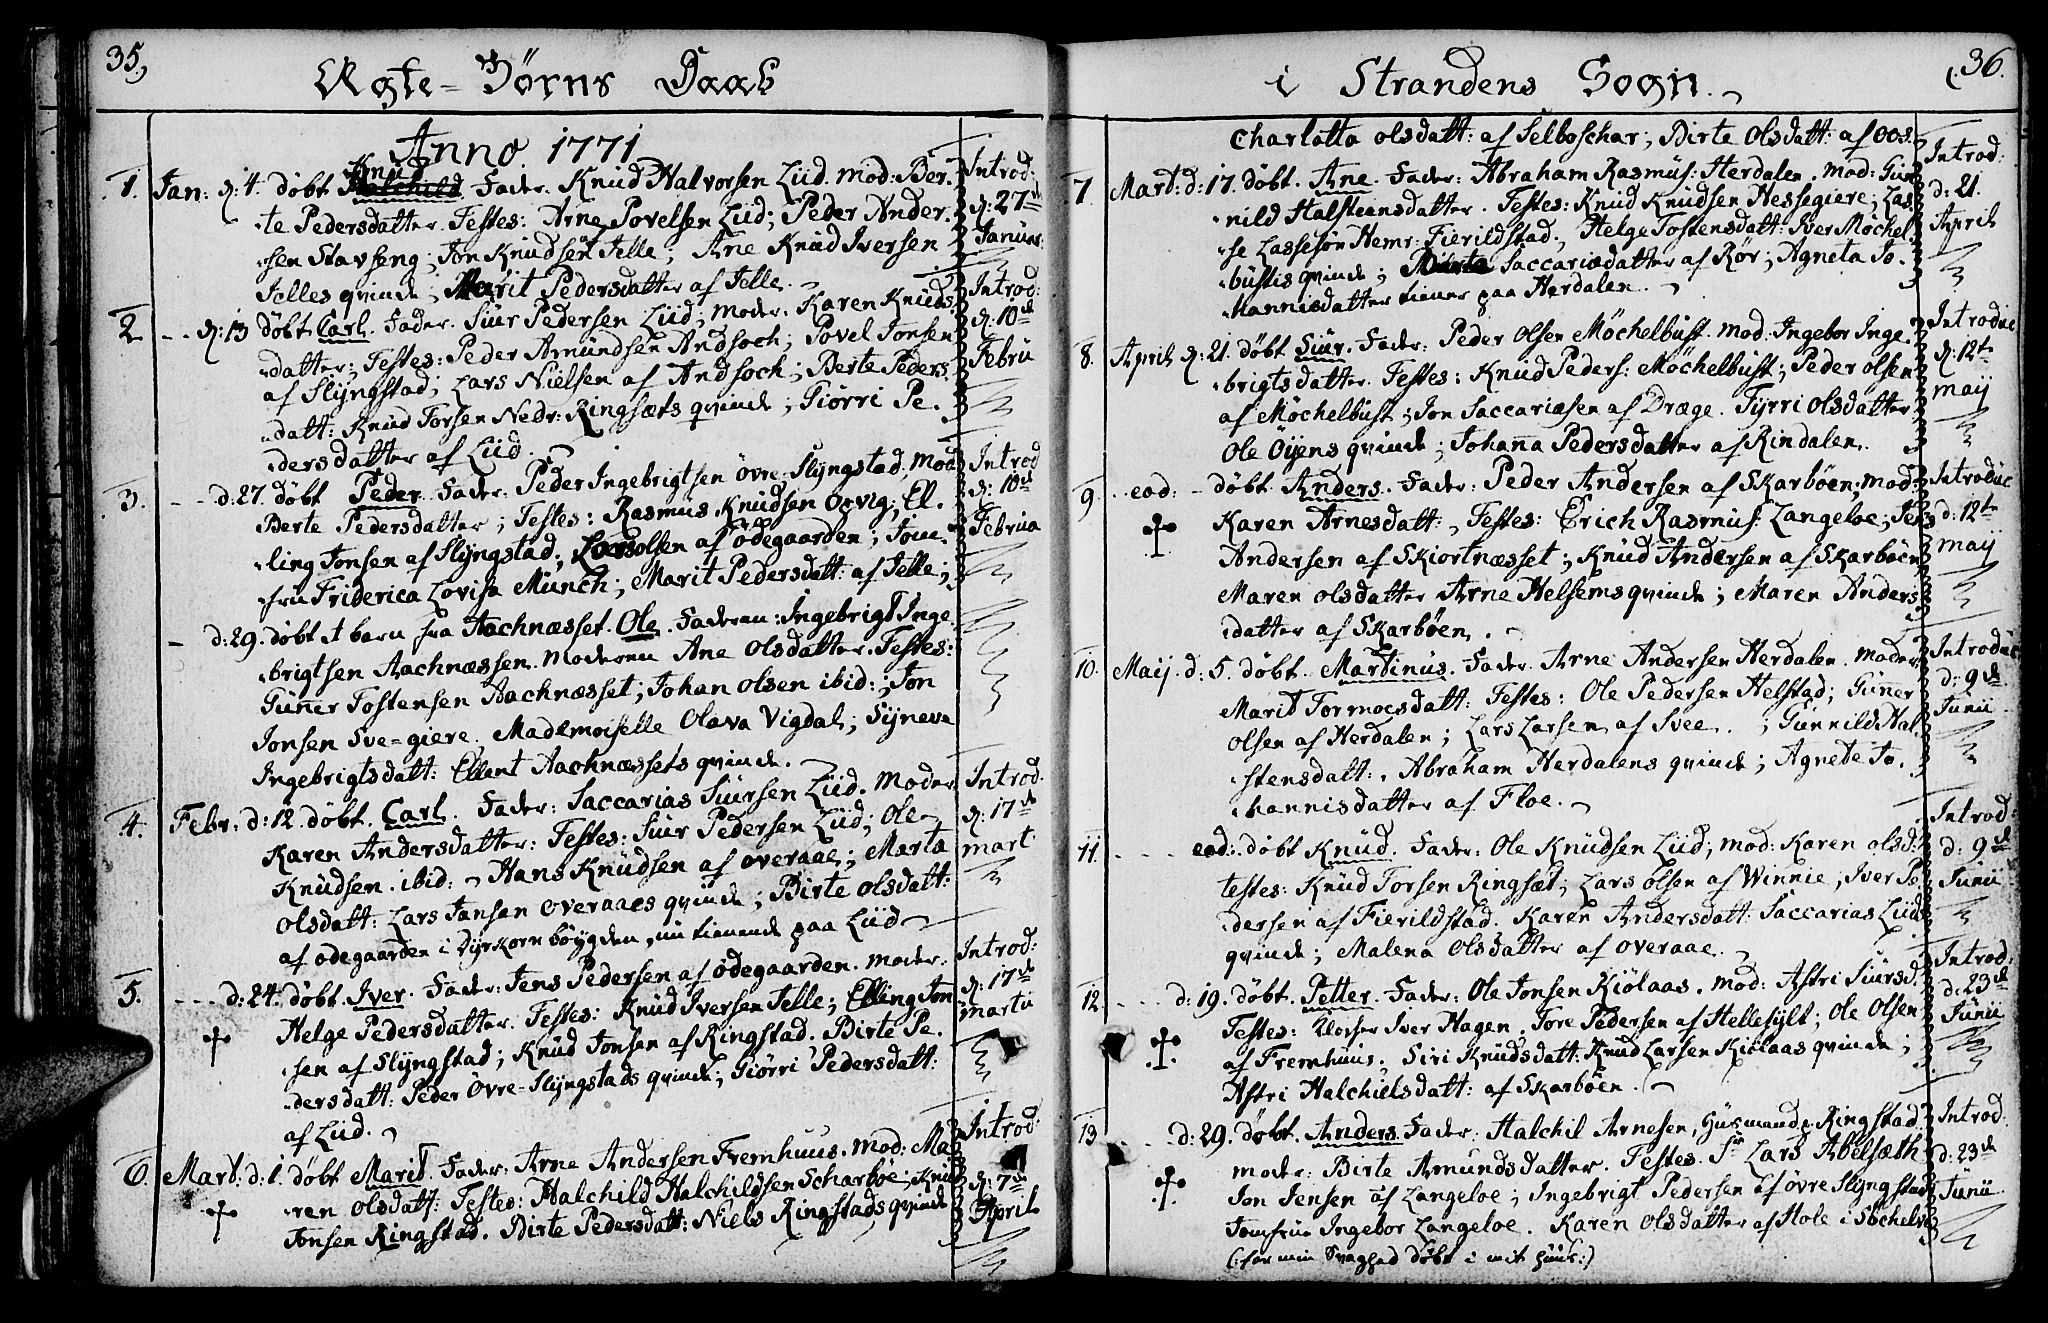 35,
Ægte-Börns Daab
Anno. 1771
1. Jan: d: 4. döbt Knud Halchild Fader. Knud Halvorsen Liid. mod: Ber-
te Pedersdatter. Testes: Arne Povelsen Liid; Peder Ander-
sen Stavseng; Jon Knudsen Jelle; Arne Knud Iversen
Jelles qvinde; Marit Pedersdatter af Jelle.
Introd:
d: 27de
Januar:
2 -- d: 13 döbt Carl. Fader. Siur Pedersen Liid; Moder. Karen Knuds-
datter; Testes: Peder Amundsen Andsoch; Povel Jonsen
af Slyngstad; Lars Nielsen af Andsoch; Berte Peders-
datt: Knud Torsen Nedr: Ringsæts qvinde; Giörri Pe-
dersdatter af Liid.
Introd:
d: 10de
Febru
3. --- d: 27. döbt Peder. Fader. Peder Ingebrigtsen övre-Slyngstad; Mod:
Berte Pedersdatter; Testes: Rasmus Knudsen Ocvig; El-
ling Jonsen af Slyngstad; Lars olsen af ödegaarden; Jom-
fru Friderica Lovisa Munch; Marit Pedersdatt: af Jelle;
Introd
d: 10de
Februa
- d: 29. döbt et barn fra Aachnæsset. Ole. Faderen: Ingebrigt Inge-
brigtsen Aachnæssen. Moderen Ane Olsdatter. Testes:
Gunner Tostensen Aachnæsset; Johan olsen ibid:; Jon
Jonsen Sve-giere. Mademoiselle Olava Vigdal; Syneva
Ingebrigtsdatt: Ellent Aachnæssets qvinde.
4. Febr: d: 12. döbt. Carl. Fader: Saccarias Siursen Liid. Moder
Karen Andersdatter: Testes: Siur Pedersen Liid; Ole
Knudsen. ibid: Hans Knudsen af overaae; Marta
Olsdatt: Lars Jansen overaaes qvinde; Birte olsdatt:
af ödegaarden i Dyrkorn böygden, nu tienende paa Liid
Introd:
d: 17de
mart
5. --- d: 24. döbt. Iver. Fader: Jens Pedersen af ödegaarden. moder:
Helge Pedersdatter. Testes: Knud Iversen Jelle; Elling Jon-
sen af Slyngstad; Knud Jonsen af Ringstad. Birte Pe-
dersdatt: Peder Övre-Slyngstads qvinde; Giörri Pedersdatt:
af Liid.
Introd:
d: 17de
martii
6. Mart. d: 1. döbt Marit. Fader: Arne Andersen Fremhuus. mod: Ma-
ren olsdatt: Testes: Halchild Halchildsen Scharböe; Knud
Jonsen Ringstad. Birte Pedersdatt: Niels Ringstads qvinde
Introd:
d: 7de
April
36.
i Strandens Sogn.
Charlotta olsdatt: af Selboschar; Birte Olsdatt: af Oos.
7. Mart: d: 17. döbt. Ane. Fader: Abraham Rasmus: Herdalen. mod: Gun-
nild Halsteensdatter. Testes: Knud Knudsen Hessegiere; Las-
se Lassesön Hemr: Fierildstad. Helge Tostensdatt: Iver Möchel-
bustis qvinde; Saccariædatter af Rör; Agneta Jo-
hannisdatter tiener paa Herdalen.
Introd:
d: 21.
April
8. April d: 21. döbt Siur. Fader: Peder olsen Möchelbust. mod: Ingebor Inge-
brigtsdatter. Testes: Knud Peders: Möchelbust; Peder olsen
af Möchelbust; Jon Saccariæsen af Dræge. Tyrri olsdatter
Ole Öyens qvinde; Johana Pedersdatter af Rindalen.
Introduc
d: 12te
maij
9 -- eod: - döbt Anders. Fader: Peder Andersen af Skarböen; mod:
Karen Arnesdatt:, Testes: Erich Rasmus: Langeloe; Jens
Andersen af Skiortnæsset; Knud Andersen af Skarböen
Maren olsdatter Arne Helsems qvinde; Maren Anders-
datter af Skarböen.
Introduc
d: 12te
maij
10. Maij. d: 5. döbt. Martinus. Fader. Arne Andersen Herdalen. moder
Marit Tormocsdatt: Testes: Ole Pedersen Helstad; Gunner
olsen af Herdalen; Lars Larsen af Svee. ; Gunnild Hal-
stensdatt:. Abraham Herdalens qvinde; Agnete Jo-
hannisdatter af Floe.
Introduc
d: 9de
Junii
11. ---- eod:. döbt Knud. Fader: Ole Knudsen Liid; mod: Karen olsd:
testes: Knud Torsen Ringsæt; Lars olsen af Winnie; Iver Pe-
dersen af Fierildstad. Karen Andersdatt: Saccarias Liids
qvinde; Malena olsdatter af overaae.
Introd:
d: 9de
Junii
12 ---- d: 19. döbt. Petter. Fader: Ole Jonsen Kiölaas. mod: Astri Siursd:
Testes: Klocher Iver Hagen. Tore Pedersen af Hellesylt; Ole Olsen
af Fremhuus; Siri Knudsdatt: Knud Larsen Kiölaas qvinde;
Astri Halchielsdatt: af Skarböen.
Introd:
d: 23de
Junii
13 --- d: 29. döbt. Anders. Fader: Halchil Arnesen, Huusmand p. Ringstad
moder: Birte Amundsdatter. Testes. Sr Lars Abelsæth
Jon Jensen af Langeloe; Ingebrigt Pedersen af övre Slyngstad
Jomfrue Ingebor Langeloe. Karen olsdatter af Hole i Söchelv
(: for min Svaghed döbt i mit huus:)
Introd.
d: 23de
Junii